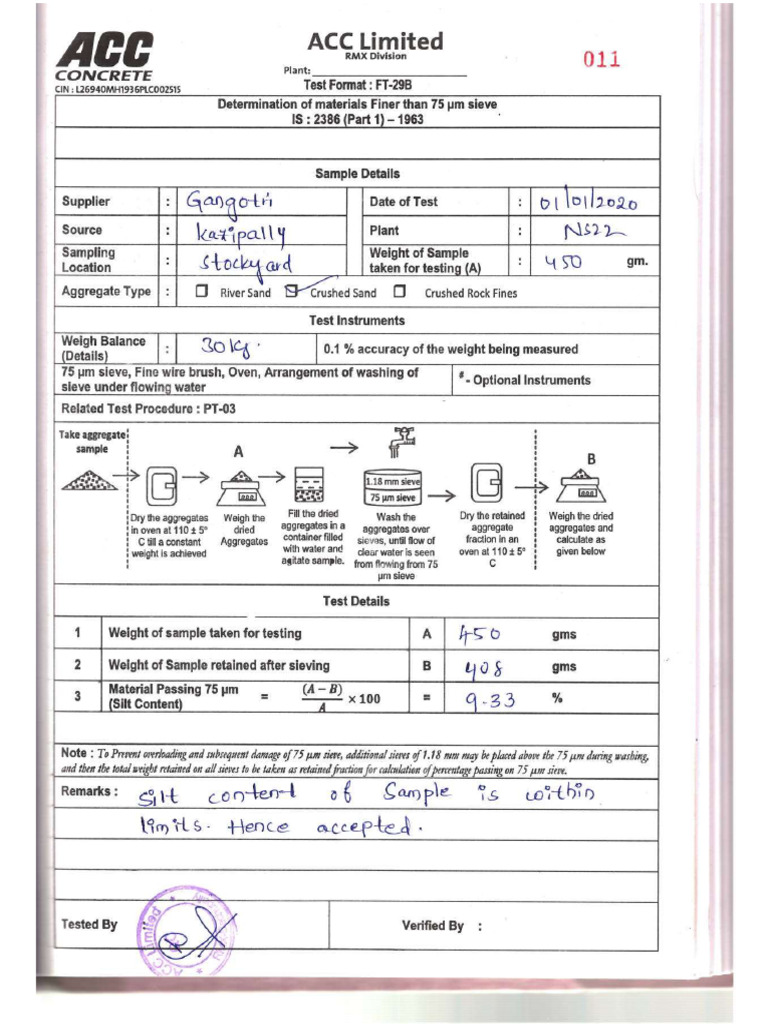 ACC
CONCRETE
CIN : L26940MH1936PLC002515
ACC Limited
RMX Division
Plant:
Test Format : FT-29B
011
Determination of materials Finer than 75 µm sieve
IS : 2386 (Part 1) – 1963
Sample Details
Supplier : Gangotri Date of Test : 01/01/2020
Source : Kazipally Plant : NS22
Sampling Location : Stockyard Weight of Sample taken for testing (A) : 450 gm.
Aggregate Type : River Sand Crushed Sand Crushed Rock Fines
Test Instruments
Weigh Balance (Details) : 30 Kg. 0.1 % accuracy of the weight being measured
75 µm sieve, Fine wire brush, Oven, Arrangement of washing of
sieve under flowing water
# - Optional Instruments
Related Test Procedure : PT-03
Take aggregate
sample
A
B
1.18 mm sieve
75 µm sieve
Dry the aggregates
in oven at 110 ± 5°
C till a constant
weight is achieved
Weigh the
dried
Aggregates
Fill the dried
aggregates in a
container filled
with water and
agitate sample.
Wash the
aggregates over
sieves, until flow of
clear water is seen
from flowing from 75
µm sieve
Dry the retained
aggregate
fraction in an
oven at 110 ± 5°
C
Weigh the dried
aggregates and
calculate as
given below
Test Details
1 Weight of sample taken for testing A 450 gms
2 Weight of Sample retained after sieving B 408 gms
3 Material Passing 75 µm (Silt Content) = (A – B) / A × 100 = 9.33 %
Note : To Prevent overloading and subsequent damage of 75 µm sieve, additional sieves of 1.18 mm may be placed above the 75 µm during washing,
and then the total weight retained on all sieves to be taken as retained fraction for calculation of percentage passing on 75 µm sieve.
Remarks : Silt content of Sample is within
limits. Hence accepted.
Tested By
ACC Limited
Verified By :